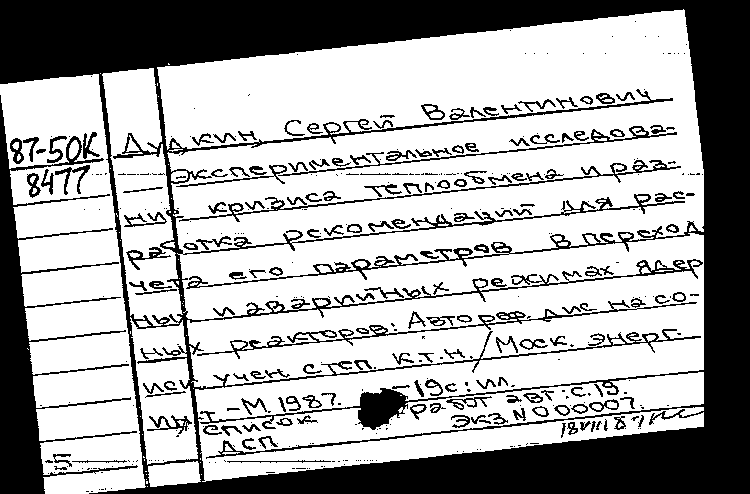 87-50К
8477
Дудкин, Сергей Валентинович
Экспериментальное исследова-
ние кризиса теплообмена и раз-
работка рекомендаций для рас-
чета его параметров в переход
ных и аварийных режимах ядер
ных реакторов: Автореф. дис на со-
иск. учен. степ. к.т.н. / Моск. энерг.
ин-т. - М. 1987. -19с: ил.
список работ авт: с.19.
ДСП ЭКЗ N 000007.
18 VIII 87
5